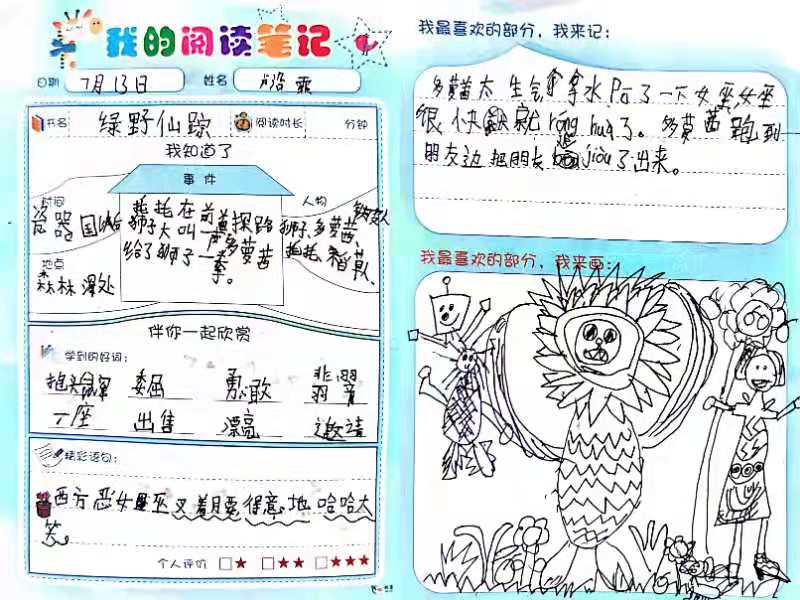 我的阅读笔记
日期 7月13日 姓名
书名 绿野仙踪 阅读时长 分钟
我知道了
事件
时间
瓷器国
地点
森林深处
托托在前面探路
狮子大叫一声多萝茜
给了狮子一拳。
人物
铁皮人
狮子、多萝茜、
托托、稻草人
伴你一起欣赏
学到的好词:
抱头鼠窜 委屈 勇敢 翡翠
一座 出售 漂亮 邀请
精彩语句:
西方恶女巫叉着腰得意地哈哈大
笑。
个人评价 □★ □★★ □★★★
我最喜欢的部分，我来记:
多萝茜太生气拿拿水Pō了一下女巫,女巫
很快就rónghuà了。多萝茜跑到
朋友边把朋友jiòu了出来。
我最喜欢的部分，我来画: